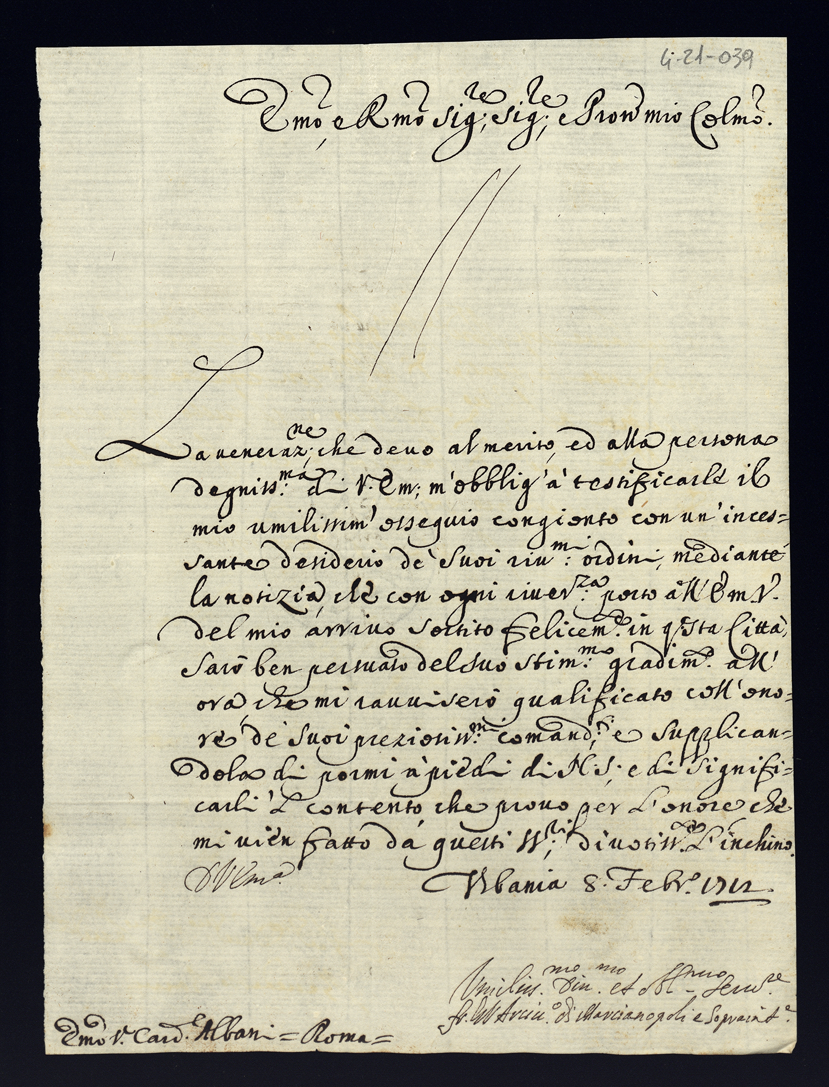 4-21-039
Emo, e Rmo Sig:re Sig:re e Pron mio Colmo.
La veneraz:ne che devo al merito, ed alla persona
degniss:ma di V. Em; m'obblig'à testificarle il
mio umilissim' ossequio congionto con un' inces=
sante desiderio de' suoi riv:mi ordini, mediante
la notizia, che con ogni river:za porto all' Em. V.
del mio arrivo sortito felicem:e in q:sta Città,
Sarò ben persuaso del suo stim:mo gradim:o all'
ora che mi ravviserò qualificato coll' ono=
re de' suoi preziosiss:mi comand:i e supplican=
dola di pormi à piedi di N. S; e di signifi=
carli 'l contento che provo per l'onore che
mi vien fatto da questi SS:ri, divotiss:te l'inchino.
D V Em:a
Urbania 8. Febr:o 1712.
Umilis:mo Div:mo et Obl:mo Serv:re
fr. Arciv:o di Marcianopoli e
Emo S:r Card:e Albani = Roma =